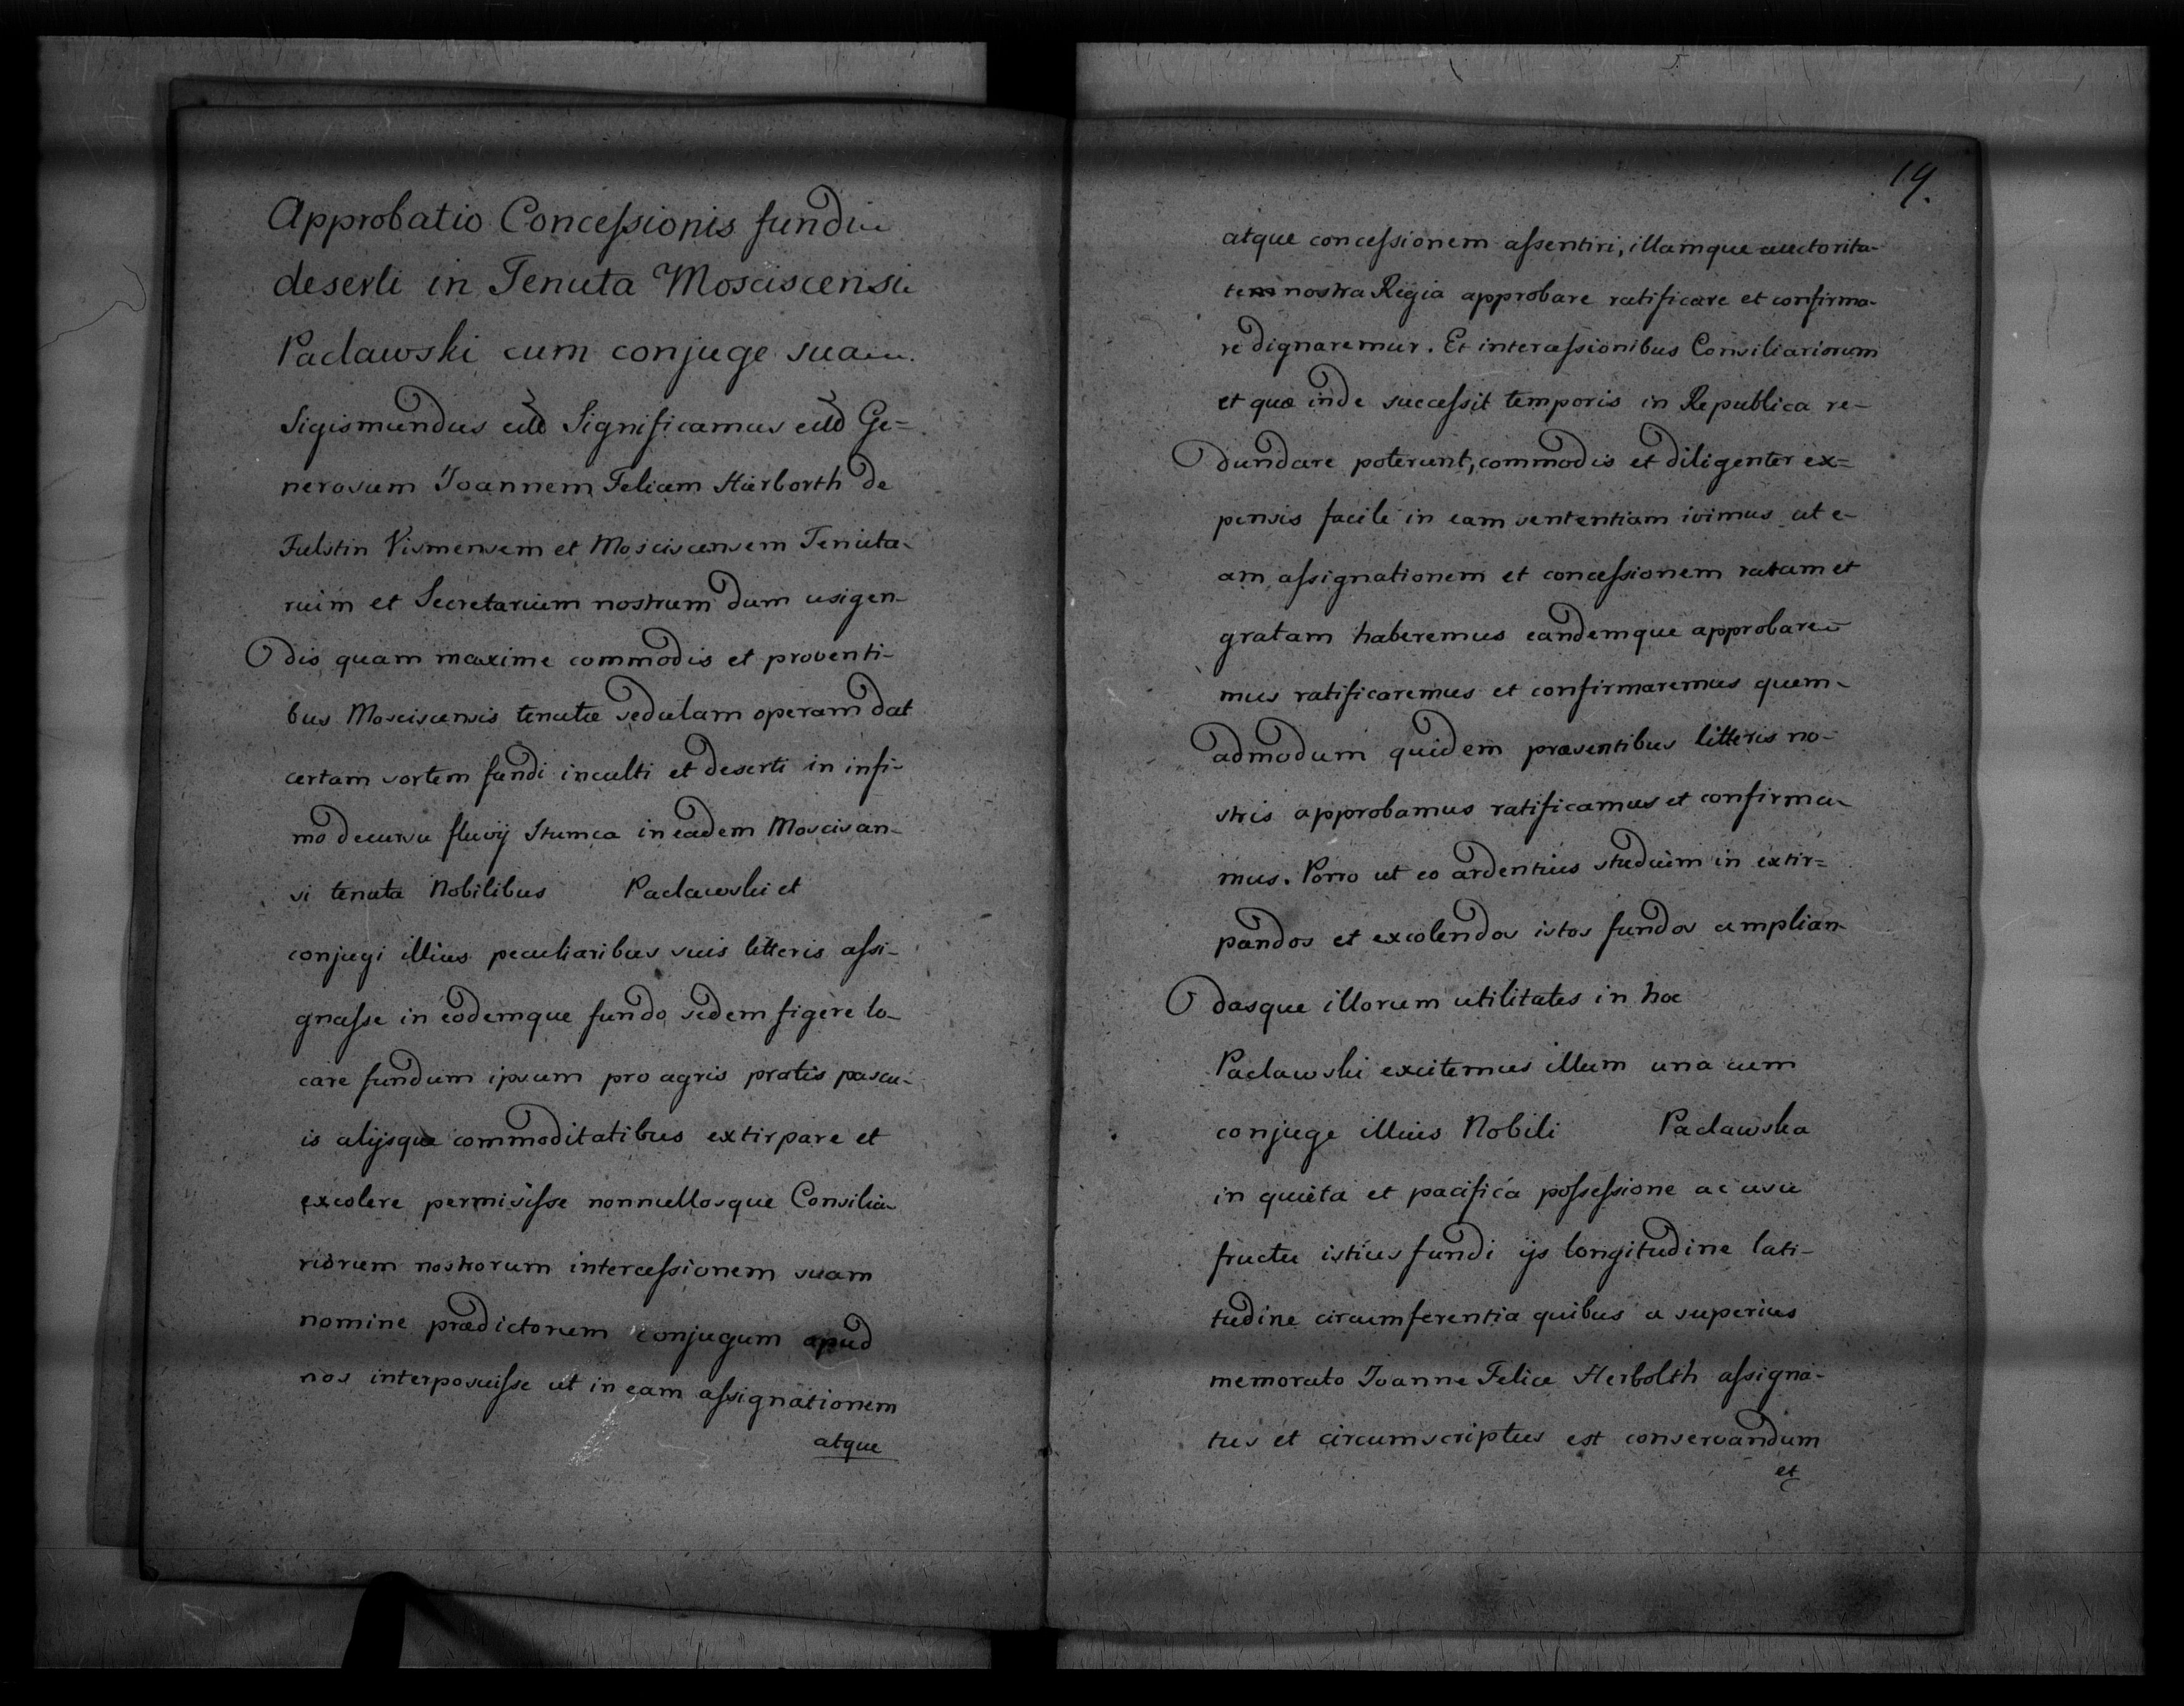 Approbatio Concessionis fundi
deserti in Tenuta Mosciscensi
Paclawski cum conjuge sua.
Sigismundus Significamus Ge=
nerosum Joannem Felicem Hierborth de
Fulstin Vismensem et Mosciscensem Tenuta-
rium et Secretarium nostrum dum usigen-
dis quam maxime commodis et proventi-
bus Mosciscensis tenutæ sedulam operam dat
certam sortem fundi inculti et deserti in infi-
mo decursu fluvij Stumca in eadem Moscisan-
si tenuta Nobilibus Paclawski et
conjugi illius peculiaribus suis litteris assi-
gnasse in eodemque fundo sedem figere lo-
care fundum ipsum pro agris pratis pascu-
is alijsque commoditatibus extirpare et
excolere permisisse nonnullosque Consilia-
riorum nostrorum intercessionem suam
nomine prædictorum conjugum apud
nos interposuisse ut in eam assignationem
atque
19.
atque concessionem assentiri, illamque auctorita-
tem nostra Regia approbare ratificare et confirma-
re dignaremur. Et intercessionibus Consiliariorum
et quæ inde successit temporis in Republica re-
dundare poterunt, commodis et diligenter ex=
pensis facile in eam sententiam ivimus ut e-
am assignationem et concessionem ratam et
gratam haberemus eandemque approbare-
mus ratificaremus et confirmaremus quem-
admodum quidem præsentibus litteris no-
stris approbamus ratificamus et confirma-
mus. Porro ut eo ardentius studium in extir=
pandos et excolendos istos fundos amplian-
dasque illorum utilitates in hoc
Paclawski excitemus illum una cum
conjuge illius Nobili Paclawska
in quieta et pacifica possessione ac usu
fructu istius fundi ijs longitudine lati-
tudine circumferentia quibus a superius
memorato Joanne Felice Herbolth assigna-
tus et circumscriptus est conservandum
et